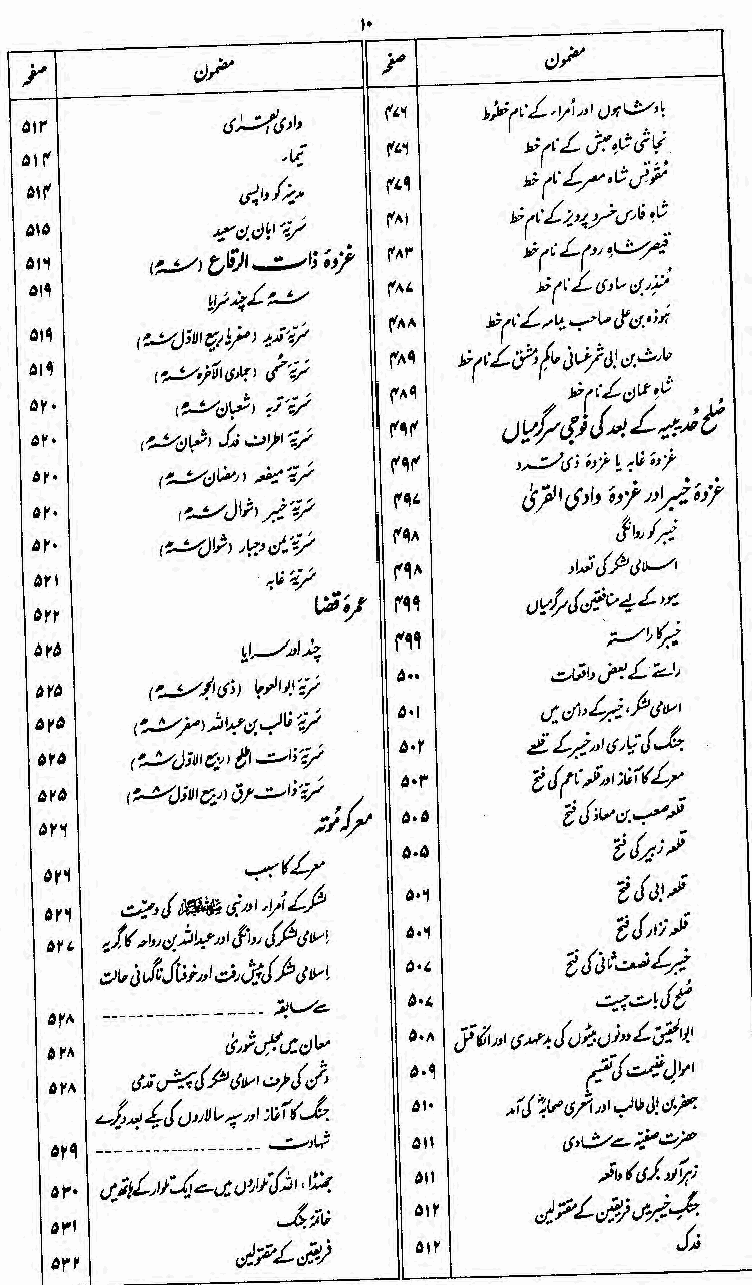 ۱۰
مضمون صفحہ
بادشاہوں اور اُمراء کے نام خطوط ۴۷۶
نجاشی شاہ حبش کے نام خط ۴۷۶
مُقَوقِس شاہ مصر کے نام خط ۴۷۹
شاہ فارس خسرو پرویز کے نام خط ۴۸۱
قیصر شاہِ روم کے نام خط ۴۸۳
مُنذِر بن ساوی کے نام خط ۴۸۷
ہوذہ بن علی صاحب یمامہ کے نام خط ۴۸۸
حارث بن ابی شمر غسانی حاکم دمشق کے نام خط ۴۸۹
شاہِ عمان کے نام خط ۴۸۹
صُلح حُدیبیہ کے بعد کی فوجی سرگرمیاں ۴۹۴
غزوۂ غابہ یا غزوۂ ذی قَرَد ۴۹۴
غزوۂ خیبر اور غزوۂ وادی القریٰ ۴۹۷
خیبر کو روانگی ۴۹۸
اسلامی لشکر کی تعداد ۴۹۸
یہود کے لیے منافقین کی سرگرمیاں ۴۹۹
خیبر کا راستہ ۴۹۹
راستے کے بعض واقعات ۵۰۰
اسلامی لشکر، خیبر کے دامن میں ۵۰۱
جنگ کی تیاری اور خیبر کے قلعے ۵۰۲
معرکے کا آغاز اور قلعہ ناعم کی فتح ۵۰۳
قلعہ صعب بن معاذ کی فتح ۵۰۵
قلعہ زبیر کی فتح ۵۰۵
قلعہ ابی کی فتح ۵۰۶
قلعہ نزار کی فتح ۵۰۶
خیبر کے نصف ثانی کی فتح ۵۰۷
صُلح کی بات چیت ۵۰۷
ابو الحقیق کے دونوں بیٹوں کی بدعہدی اور انکا قتل ۵۰۸
اموالِ غنیمت کی تقسیم ۵۰۹
جعفر بن ابی طالب اور اشعری صحابہؓ کی آمد ۵۱۰
حضرت صفیّہ سے شادی ۵۱۱
زہر آلود بکری کا واقعہ ۵۱۱
جنگِ خیبر میں فریقین کے مقتولین ۵۱۲
فدک ۵۱۲
مضمون صفحہ
وادی القریٰ ۵۱۳
تیماء ۵۱۴
مدینہ کو واپسی ۵۱۴
سَریّۂ ابان بن سعید ۵۱۵
غزوۂ ذات الرقاع (۷ھ) ۵۱۶
۷ھ کے چند سَرایا ۵۱۹
سَریّۂ قدید (صفر یا ربیع الاوّل ۷ھ) ۵۱۹
سَریّۂ حِسْمٰی (جمادی الآخرہ ۷ھ) ۵۱۹
سَریّۂ تربہ (شعبان ۷ھ) ۵۲۰
سَریّۂ اطراف فدک (شعبان ۷ھ) ۵۲۰
سَریّۂ میفعہ (رمضان ۷ھ) ۵۲۰
سَریّۂ خیبر (شوال ۷ھ) ۵۲۰
سَریّۂ یمن و جبار (شوال ۷ھ) ۵۲۰
سَریّۂ غابہ ۵۲۱
عمرۂ قضا ۵۲۲
چند اور سرایا ۵۲۵
سَریّۂ ابو العوجا (ذی الحجہ ۷ھ) ۵۲۵
سَریّۂ غالب بن عبداللہ (صفر ۸ھ) ۵۲۵
سَریّۂ ذات اطلح (ربیع الاوّل ۸ھ) ۵۲۵
سَریّۂ ذات عرق (ربیع الاوّل ۸ھ) ۵۲۵
معرکہ مُوتہ ۵۲۶
معرکے کا سبب ۵۲۶
لشکر کے اُمراء اور نبی ﷺ کی وصیّت ۵۲۶
اسلامی لشکر کی روانگی اور عبداللہ بن رواحہ کا گریہ ۵۲۷
اسلامی لشکر کی پیش رفت اور خوفناک ناگہانی حالت
سے سابقہ ---------------- ۵۲۸
معان میں مجلسِ شوریٰ ۵۲۸
دشمن کی طرف اسلامی لشکر کی پیش قدمی ۵۲۸
جنگ کا آغاز اور سپہ سالاروں کی یکے بعد دیگرے
شہادت ---------------- ۵۲۹
جھنڈا، اللہ کی تلواروں میں سے ایک تلوار کے ہاتھ میں ۵۳۰
خاتمۂ جنگ ۵۳۱
فریقین کے مقتولین ۵۳۲